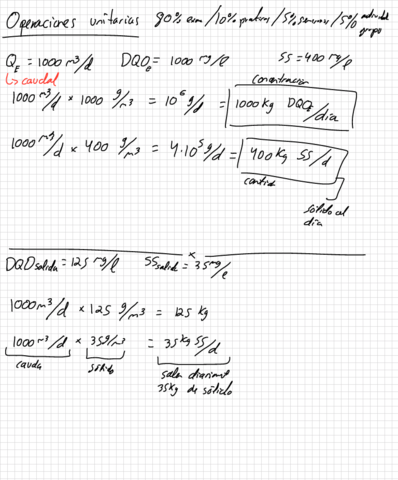 Operaciones unitarias 80% exam / 10% practicas / 5% seminarios / 5% actividad grupo
QE = 1000 m³/d DQOe = 1000 mg/l SS = 400 mg/l
↳ caudal
concentracion
1000 m³/d × 1000 g/m³ = 10⁶ g/d = 1000 kg DQOE/dia
1000 m³/d × 400 g/m³ = 4·10⁵ g/d = 400 kg SS/d
cantid
sólido al dia
×
DQOsalida = 125 mg/l SSsalid = 35 mg/l
1000 m³/d × 125 g/m³ = 125 kg
1000 m³/d × 35 g/m³ = 35 kg SS/d
cauda sólido salen diariament
35kg de sólido